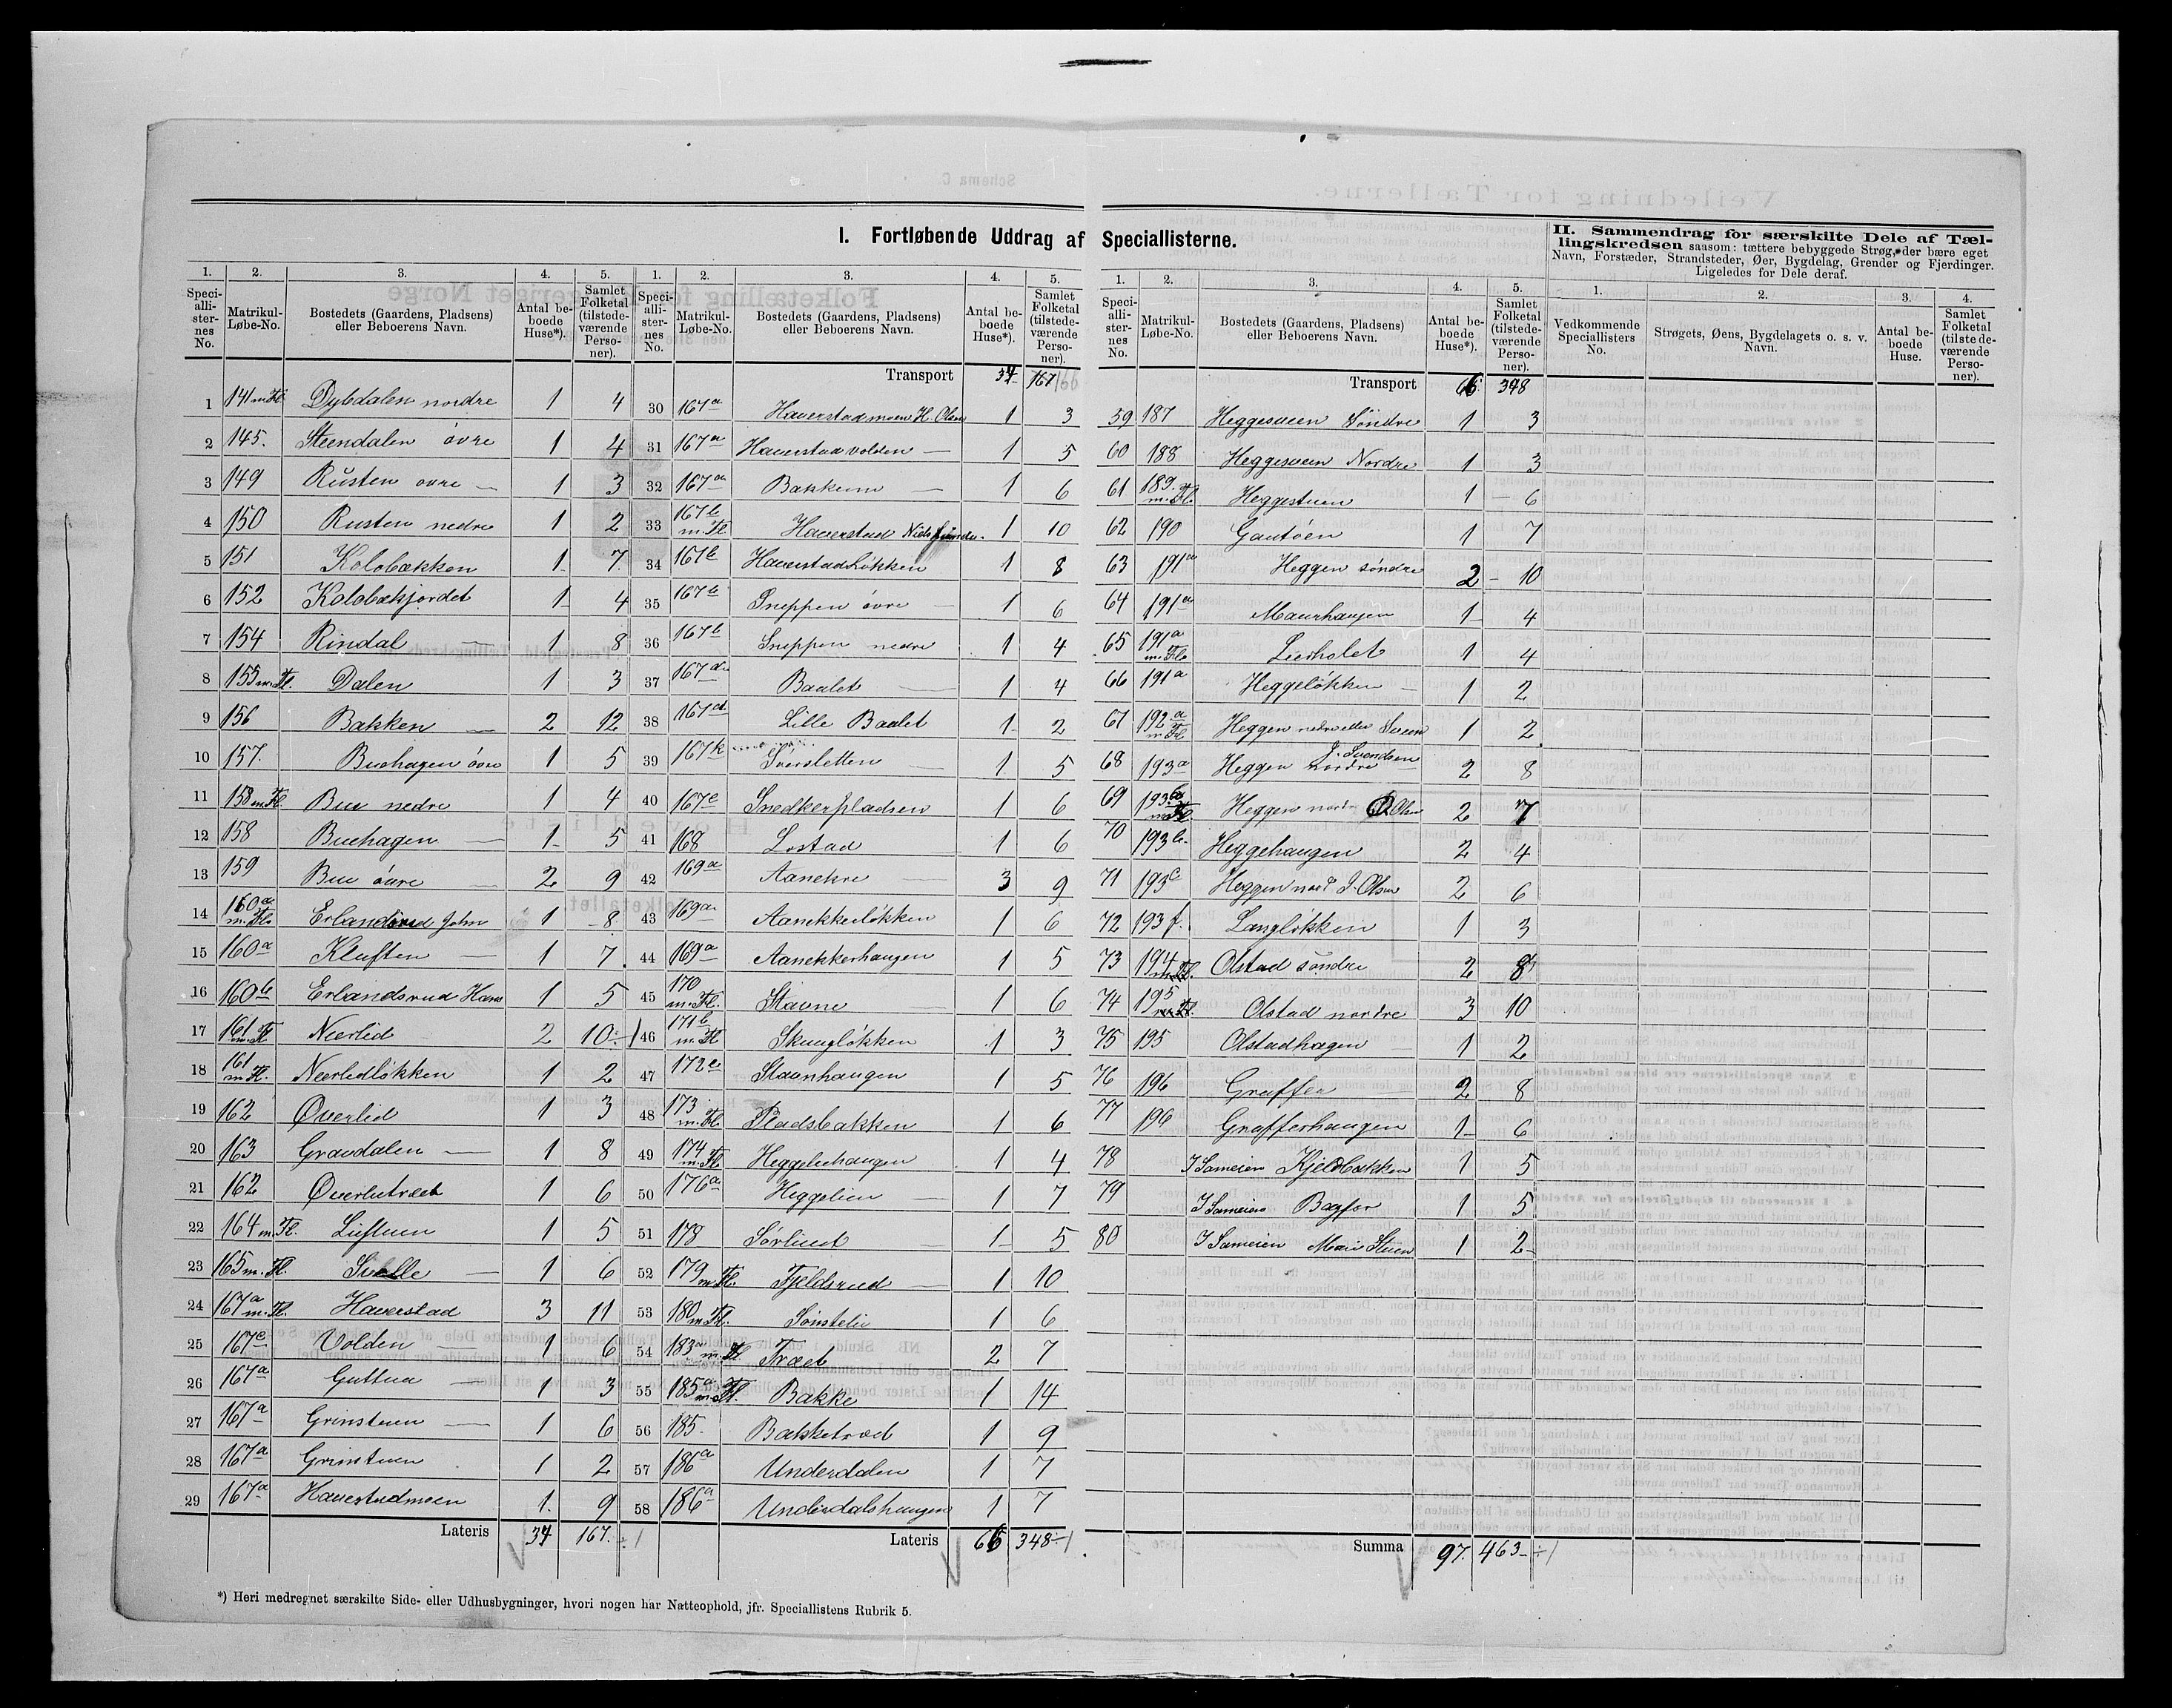 I. Fortløbende Uddrag af Speciallisterne.
II. Sammendrag for særskilte Dele af Tæl-
lingskredsen saasom: tættere bebyggede Strøg, der bære eget
Navn, Forstæder, Strandsteder, Øer, Bygdelag, Grender og Fjerdinger.
Ligeledes for Dele deraf.
1. 2. 3. 4. 5.
Speciallisternes No. Matrikul-Løbe-No. Bostedets (Gaardens, Pladsens) eller Beboerens Navn. Antal beboede Huse*). Samlet Folketal (tilstedeværende Personer).
1 141 m. Fl. Dybdalen nordre 1 4
2 145. Steendalen øvre 1 4
3 149 Rusten øvre 1 3
4 150 Rusten nedre 1 2
5 151 Kolobækken 1 7
6 152 Kolobækjordet 1 4
7 154 Rindal 1 8
8 155 m. Fl. Dalen 1 3
9 156 Bakken 2 12
10 157. Buehagen øvre 1 5
11 158 m. Fl. Bue nedre 1 4
12 158 Buehagen 1 5
13 159 Bue øvre 2 9
14 160a m. Fl. Erlandsrud John 1 8
15 160a Kluften 1 7
16 160b Erlandsrud Hans 1 5
17 161 m. Fl. Neerlid 2 10
18 161 m. Fl. Neerlidløkken 1 2
19 162 Øverlid 1 3
20 163 Gravdalen 1 8
21 162 Øverlitræet 1 6
22 164 m. Fl. Luftuen 1 5
23 165 m. Fl. Svelle 1 6
24 167a m. Fl. Haverstad 3 11
25 167e Volden 1 6
26 167a Guttua 1 3
27 167a Grinstuen 1 6
28 167a Grinstuen 1 2
29 167a Haverstadmoen 1 9
Lateris 34 167. ÷1
1. 2. 3. 4. 5.
Speciallisternes No. Matrikul-Løbe-No. Bostedets (Gaardens, Pladsens) eller Beboerens Navn. Antal beboede Huse*). Samlet Folketal (tilstedeværende Personer).
Transport 34 167 166
30 167a Haverstadmoen H. Olsen 1 3
31 167a Haverstadvolden 1 5
32 167a Bakkerne 1 6
33 167b m. Fl. Haverstad Niels 1 10
34 167b Haverstadløkken 1 8
35 167b Sneppen øvre 1 6
36 167b Sneppen nedre 1 4
37 167d Baalet 1 4
38 167d Lille Baalet 1 2
39 167k Sversletten 1 5
40 167e Snedkerpladsen 1 6
41 168 Lostad 1 6
42 169a Aanekre 3 9
43 169a Aanekkerløkken 1 6
44 169a Aanekkerhaugen 1 5
45 170 m. Fl. Stavne 1 6
46 171b m. Fl. Skaugløkken 1 3
47 172e Stavnhaugen 1 5
48 173 m. Fl. Pladsbakken 1 6
49 174 m. Fl. Heggeliehaugen 1 4
50 176a Heggelien 1 7
51 178 Sørlied 1 5
52 179 m. Fl. Fjeldsrud 1 10
53 180 m. Fl. Sønstelie 1 6
54 183a m. Fl. Træet 2 7
55 185a m. Fl. Bakke 1 14
56 185. Bakketræet 1 9
57 186a Underdalen 1 7
58 186a Underdalshaugen 1 7
Lateris 66 348 ÷1
1. 2. 3. 4. 5.
Speciallisternes No. Matrikul-Løbe-No. Bostedets (Gaardens, Pladsens) eller Beboerens Navn. Antal beboede Huse*). Samlet Folketal (tilstedeværende Personer).
Transport 66 348
59 187 Heggesveen Søndre 1 3
60 188 Heggesveen Nordre 1 3
61 189. m. Fl. Heggestuen 1 6
62 190 Gautøen 1 7
63 191a Heggen søndre 2 10
64 191a Maurhaugen 1 4
65 191a m. Fl. Lierholet 1 4
66 191a Heggeløkken 1 2
67 192a m. Fl. Heggen nedre eller Sveen 1 2
68 193a Heggen nordre J. Svendsen 2 8
69 193b m. Fl. Heggen nord O. Olsen 2 7
70 193b. Heggehaugen 2 4
71 193c Heggen nord J. Olsen 2 6
72 193f. Langløkken 1 3
73 194 m. Fl. Olstad søndre 2 8
74 195 m. Fl. Olstad nordre 3 10
75 195 Olstadhagen 1 2
76 196 Graffer 2 8
77 196 Grafferhaugen 1 6
78 I Sameien Kjeldbækken 1 5
79 I Sameien Bagfor 1 5
80 I Sameien Mari Stuen 1 2
Summa 97. 463 ÷1
1. 2. 3. 4.
Vedkommende Speciallisters No. Strøgets, Øens, Bygdelagets o. s. v. Navn. Antal beboede Huse. Samlet Folketal (tilstedeværende Personer).
*) Heri medregnet særskilte Side- eller Udhusbygninger, hvori nogen har Natteophold, jfr. Speciallistens Rubrik 5.